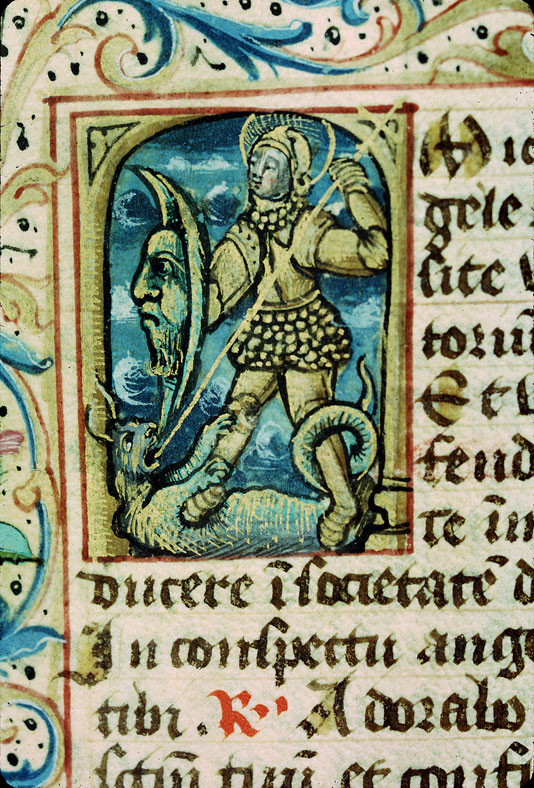 Mic
gele
site
torū
Et
fend
te īm
ducere ī societatē d
In conspectu ange
tibi . R Adorabo
sctm̄ tuū et confi